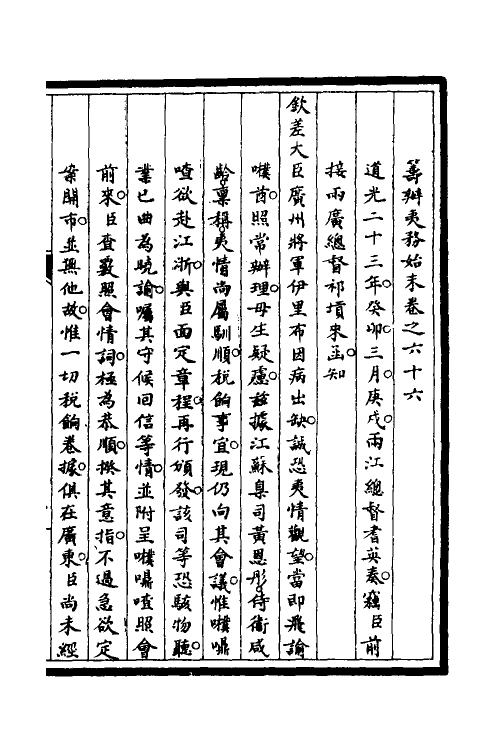 籌辦夷務始末卷之六十六
道光二十三年。癸卯。三月庚戌。兩江總督耆英奏。竊臣前
接兩廣總督祁𡎴來函。知
欽差大臣廣州將軍伊里布因病出缺。誠恐夷情觀望。當即飛諭
噗酋。照常辦理。毋生疑慮。茲據江蘇臬司黃恩彤。侍衛咸
齡稟稱。夷情尚屬馴順。稅餉事宜。現仍向其會議。惟噗囑
喳欲赴江浙。與臣面定章程。再行頒發。該司等恐駭物聽。
業已曲為曉諭。囑其守候回信等情。並附呈噗囑喳照會
前來。臣查覈照會情詞。極為恭順。揆其意指。不過急欲定
案開市。並無他故。惟一切稅餉卷據。俱在廣東。臣尚未經